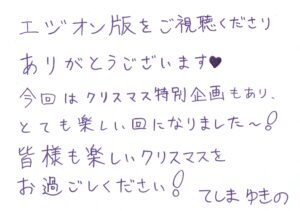 エジオン版をご視聴くださり
ありがとうございます♥
今回はクリスマス特別企画もあり、
とても楽しい回になりました〜!
皆様も楽しいクリスマスを
お過ごしください!
てしまゆきの